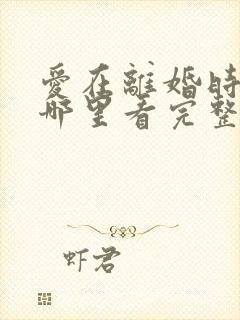 愛在離婚時
哪里看完整
虾君